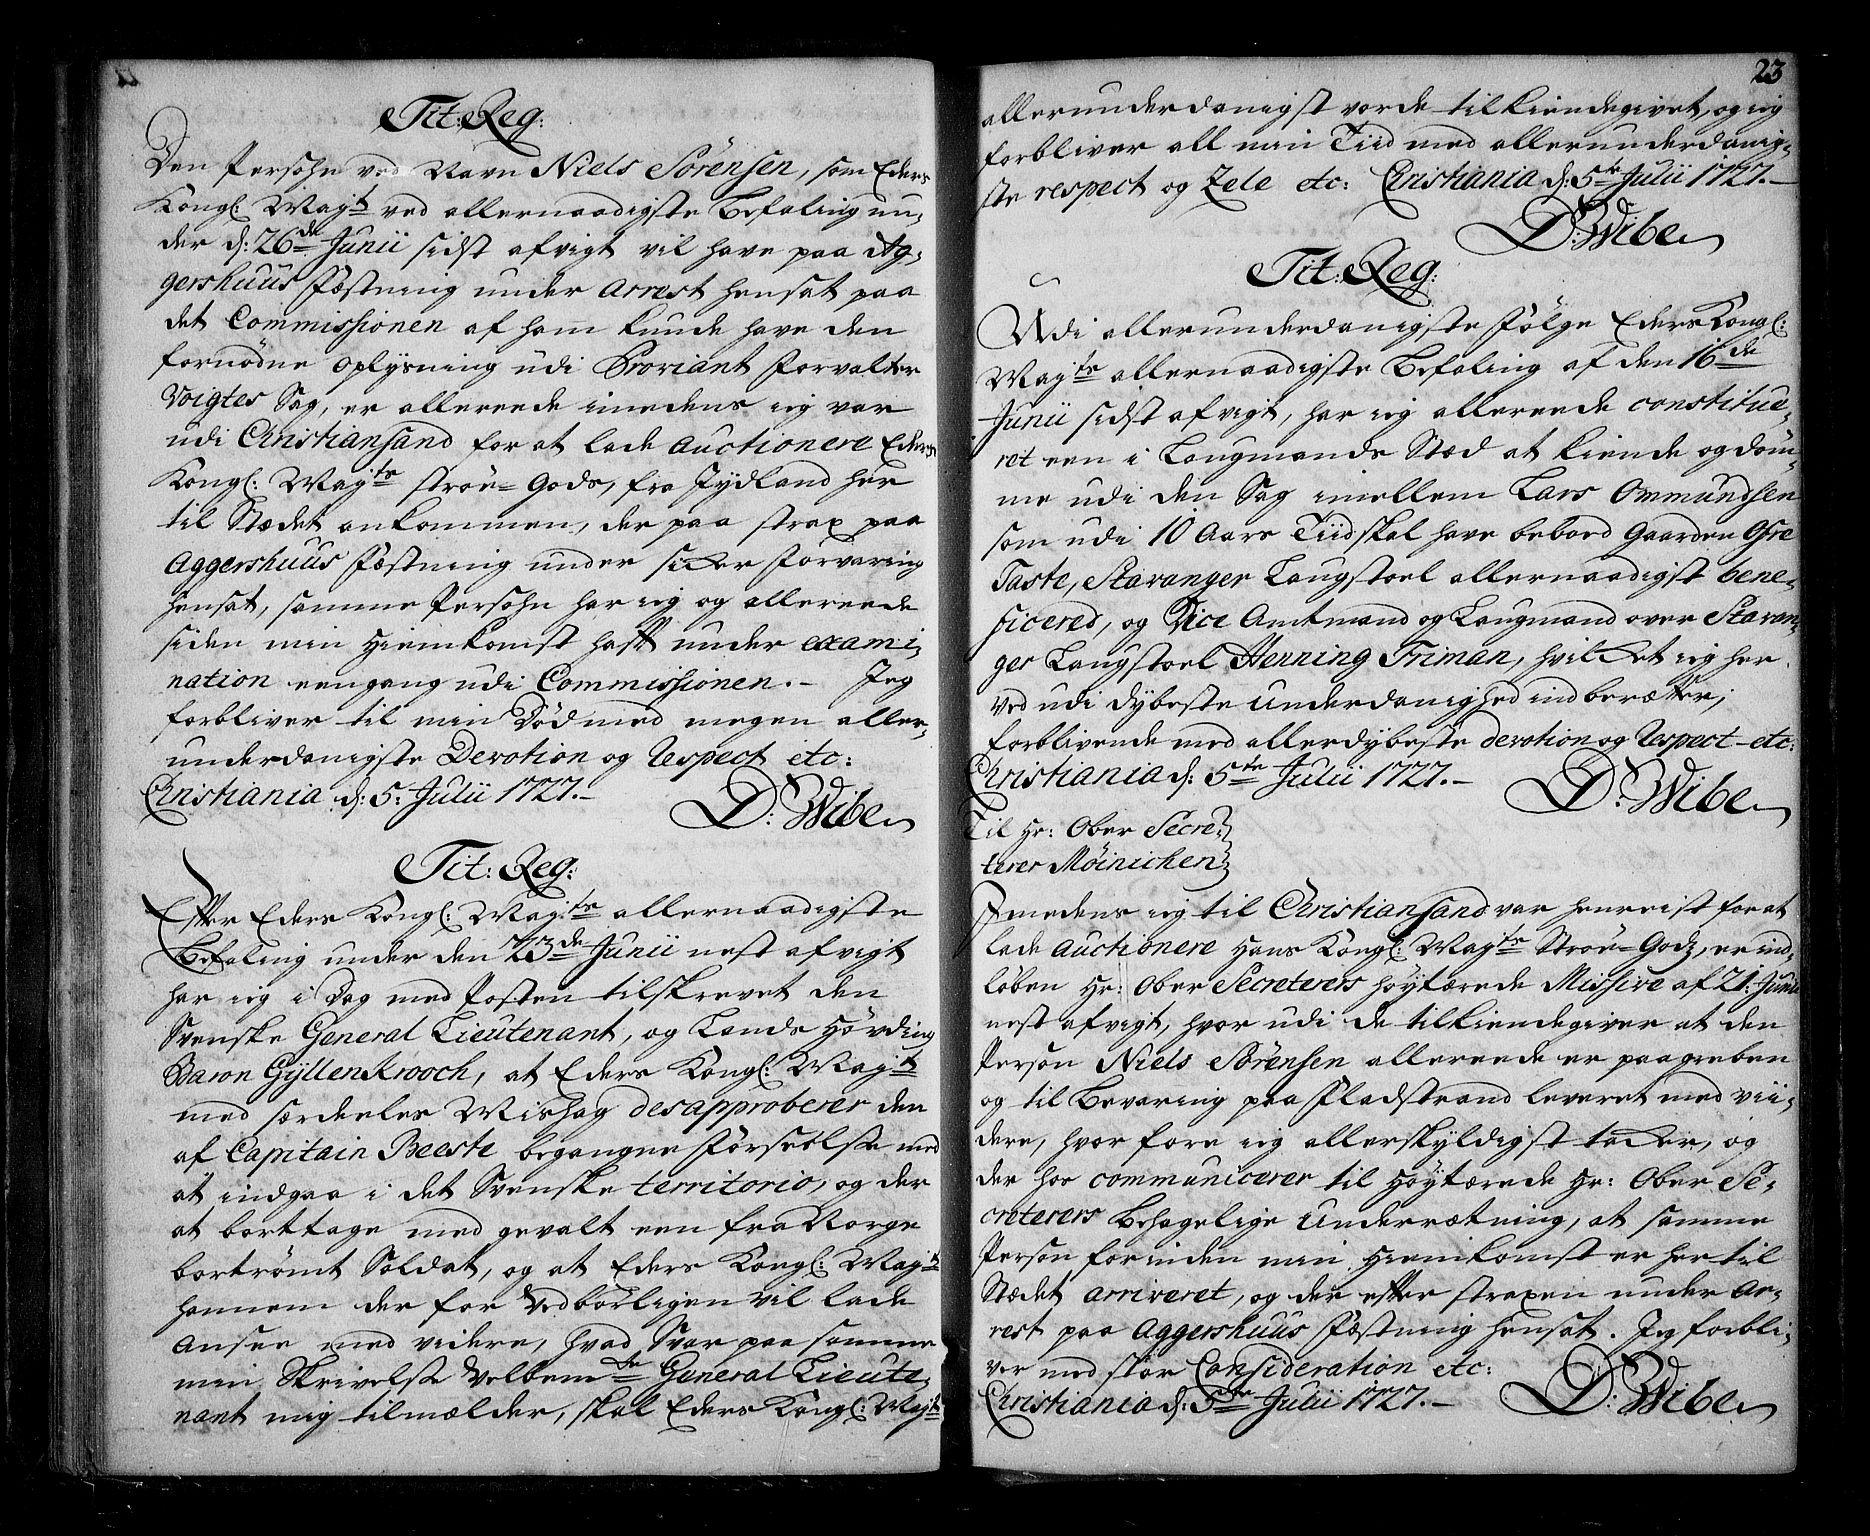 Tit: Reg:
Den Persohn ved Navn Niels Sörensen, som Eders
Kongl: Maj:t ved allernaadigste Befaling un-
der d: 26de Junii sidst afvigt vil have paa Ag-
gershuus Fæstning under Arrest hensat paa
det Commissionen af ham kunde have den
fornødne Oplysning udi Proviant Forvalter
Voigtes Sag, er allereede imedens ieg var
udi Christiansand for at lade Auctionere Eders
Kongl: Maj:ts strøe-Gods, fra Jydland her
til Stædet ankommen, der paa strax paa
Aggershuus Fæstning under sicker Forvaring
hensat, samme Persohn har ieg og allereede
siden min Hiemkomst hafft under exami-
nation eengang udi Commissionen.- Jeg
forbliver til min Död med megen aller-
underdanigste Devotion og Respect etc:
Christiania d: 5: Julii 1727.-
D: Wibe
Tit: Reg:
Efter Eders Kongl: Maj:ts allernaadigste
Befaling under den 23de Junii nest afvigt
har ieg i Dag med Posten tilskrevet den
Svenske General Lieutenant, og Lands Hövding
Baron Gyllenkrooch, at Eders Kongl: Maj:t
med særdeeles Mishag desapproberer den
af Capitain Beeste begangne Forseelse med
at indgaa i det Svenske territorio, og der
at borttage med gevalt een fra Norge
bortrömt Soldat, og at Eders Kongl: Maj:t
hannem der for Vedbörligen vil lade
Ansee med videre, hvad Svar paa samme
min Skrivelse Velbem:te General Lieute-
nant mig tilmælder, skal Eders Kongl: Maj:t
23
allerunderdanigst vorde tilkiendegivet, og ieg
forbliver all min Tiid med allerunderdanig-
ste respect og Zele etc: Christiania d: 5te Julii 1727.-
D: Wibe
Tit: Reg:
Udi allerunderdanigste Fölge Eders Kongl:
Maj:ts allernaadigste Befaling af den 16de
Junii sidst afvigt, har ieg allereede constitue-
ret een i Laugmands Stæd at kiende og döm-
me udi den Sag imellem Lars Ommundsen
som udi 10 Aars Tiid skal have beboed Gaarden Gre
Taste, Stavanger Laugstoel allernaadigst bene-
ficered, og Vice Amtmand og Laugmand over Stavan-
ger Laugstoel Henning Friman, hvilcket ieg her
ved udi dybeste Underdanighed indberætter;
forblivende med allerdybeste devotion og Respect etc:
Christiania d: 5te Julii 1727.-
D: Wibe
Til Hr: Ober Secre-
terer Möinichen
Imedens ieg til Christiansand var henreist for at
lade Auctionere Hans Kongl: Maj:ts Strøe-Godz, er ind-
löben Hr: Ober Secreterers höytærede Missive af 21: Junii
nest afvigt, hvor udi de tilkiendegiver at den
Person Niels Sörensen allereede er paagreben
og til Bevaring paa Fladstrand leveret med vii-
dere, hvor fore ieg allerskyldigst tacker, og
der hos communicerer til Höytærede Hr: Ober Se-
creterers Behagelige Underrætning, at samme
Person forinden min Hiemkomst er her til
Stædet arriveret, og der efter straxen under Ar-
rest paa Aggershuus Fæstning hensat. Jeg forbli-
ver med stor Consideration etc:
Christiania d: 5te Julii 1727.-
D: Wibe